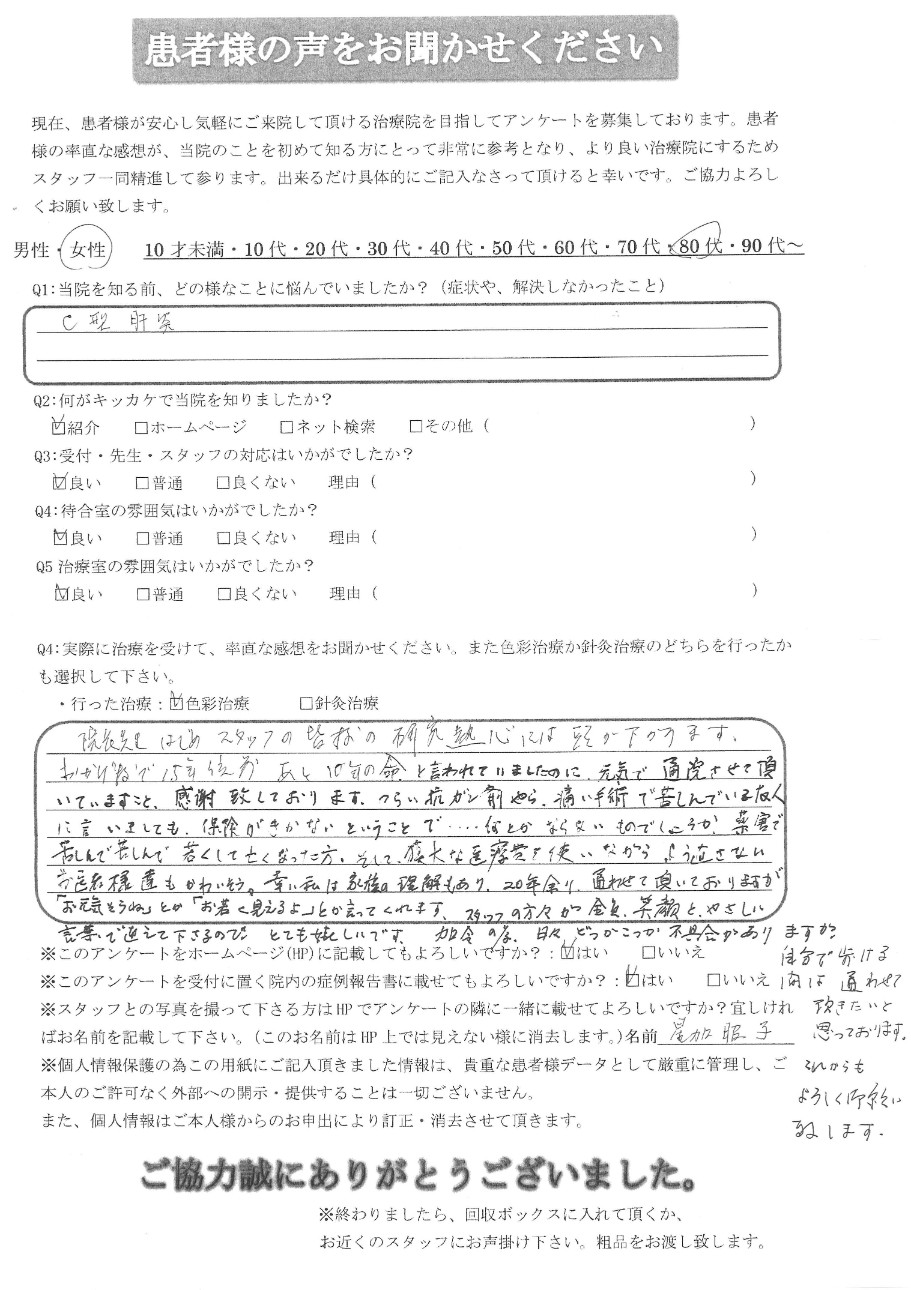 患者様の声をお聞かせください
現在、患者様が安心し気軽にご来院して頂ける治療院を目指してアンケートを募集しております。患者
様の率直な感想が、当院のことを初めて知る方にとって非常に参考となり、より良い治療院にするため
スタッフ一同精進して参ります。出来るだけ具体的にご記入なさって頂けると幸いです。ご協力よろし
くお願い致します。
男性・女性 10才未満・10代・20代・30代・40代・50代・60代・70代・80代・90代〜
Q1:当院を知る前、どの様なことに悩んでいましたか？（症状や、解決しなかったこと）
C型肝炎
Q2:何がキッカケで当院を知りましたか？
☑紹介 □ホームページ □ネット検索 □その他（ ）
Q3:受付・先生・スタッフの対応はいかがでしたか？
☑良い □普通 □良くない 理由（ ）
Q4:待合室の雰囲気はいかがでしたか？
☑良い □普通 □良くない 理由（ ）
Q5 治療室の雰囲気はいかがでしたか？
☑良い □普通 □良くない 理由（ ）
Q4:実際に治療を受けて、率直な感想をお聞かせください。また色彩治療か針灸治療のどちらを行ったか
も選択して下さい。
・行った治療：☑色彩治療 □針灸治療
院長先生はじめスタッフの皆様の研究熱心には頭が下がります。
おかげ様で15年位前 あと10年の命と言われていましたのに、元気で通院させて頂
いていますこと、感謝致しております。つらい抗ガン剤やら、痛い手術で苦しんでいる友人
に言いましても、保険がきかないということで……何とかならないものでしょうか。薬害で
苦しんで苦しんで若くして亡くなった方、そして、膨大な医療費を使いながら よう治さない
お医者様達もかわいそう。幸い私は家族の理解もあり、20年余り、通わせて頂いておりますが
「お元気そうね」とか「お若く見えるよ」とか言ってくれます。スタッフの方々が全員、笑顔と、やさしい
言葉で迎えて下さるので とても嬉しいです。 日々どっかこっか不具合がありますが
自分で歩ける
内は通わせて
頂きたいと
思っております。
これからも
よろしく御願い
致します。
※このアンケートをホームページ(HP)に記載してもよろしいですか？：☑はい □いいえ
※このアンケートを受付に置く院内の症例報告書に載せてもよろしいですか？：☑はい □いいえ
※スタッフとの写真を撮って下さる方はHPでアンケートの隣に一緒に載せてよろしいですか？宜しけれ
ばお名前を記載して下さい。(このお名前はHP上では見えない様に消去します。)名前
※個人情報保護の為この用紙にご記入頂きました情報は、貴重な患者様データとして厳重に管理し、ご
本人のご許可なく外部への開示・提供することは一切ございません。
また、個人情報はご本人様からのお申出により訂正・消去させて頂きます。
ご協力誠にありがとうございました。
※終わりましたら、回収ボックスに入れて頂くか、
お近くのスタッフにお声掛け下さい。粗品をお渡し致します。